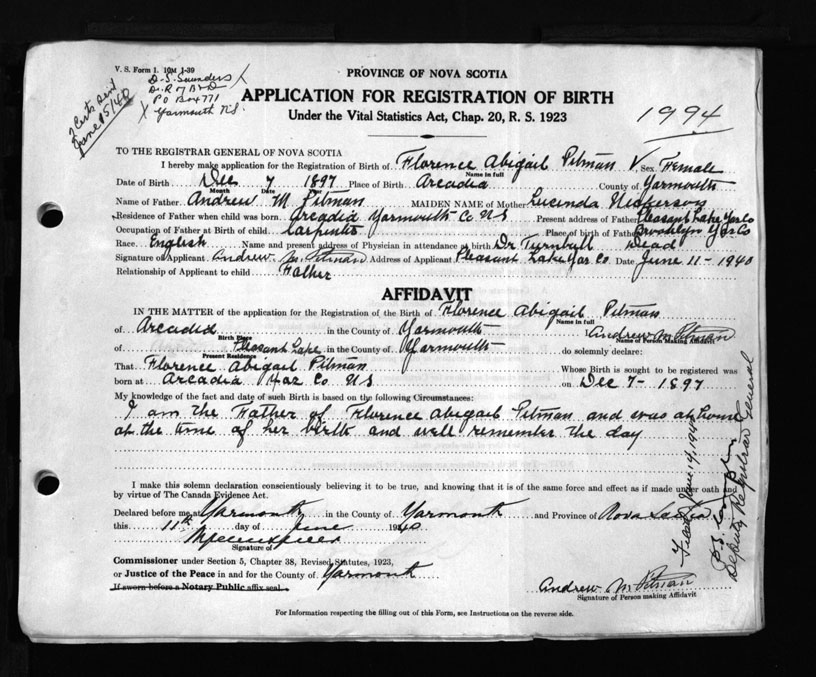 V. S. Form 1. 10M 1-39
D. S. Saunders
D. R of B & D
P O Box 771
Yarmouth N.S.
2 Certs sent
June 15/40
PROVINCE OF NOVA SCOTIA
APPLICATION FOR REGISTRATION OF BIRTH
Under the Vital Statistics Act, Chap. 20, R. S. 1923
1994
TO THE REGISTRAR GENERAL OF NOVA SCOTIA
I hereby make application for the Registration of Birth of Florence Abigail Pitman Sex Female
Name in full
Date of Birth Dec 7 1897 Place of Birth Arcadia County of Yarmouth
Month Date Year
Name of Father Andrew M Pitman MAIDEN NAME of Mother Lucinda Nickerson
Residence of Father when child was born Arcadia Yarmouth Co NS Present address of Father Pleasant Lake Yar Co
Occupation of Father at Birth of child Carpenter Place of birth of Father Brooklyn Yar Co
Race English Name and present address of Physician in attendance at birth Dr Turnbull Dead
Signature of Applicant Andrew M. Pitman Address of Applicant Pleasant Lake Yar Co. Date June 11 - 1940
Relationship of Applicant to child Father
AFFIDAVIT
IN THE MATTER of the application for the Registration of the Birth of Florence Abigail Pitman
Name in full
of Arcadia in the County of Yarmouth I Andrew M Pitman
Birth Place Name of Person Making Affidavit
of Pleasant Lake in the County of Yarmouth do solemnly declare:
Present Residence
That Florence Abigail Pitman Whose Birth is sought to be registered was
born at Arcadia Yar Co NS on Dec 7 - 1897
My knowledge of the fact and date of such Birth is based on the following Circumstances:
I am the Father of Florence Abigail Pitman and was at home
at the time of her birth and well remember the day
I make this solemn declaration conscientiously believing it to be true, and knowing that it is of the same force and effect as if made under oath and
by virtue of The Canada Evidence Act.
Declared before me at Yarmouth in the County of Yarmouth and Province of Nova Scotia
this 11th day of June 1940
Signature of
Commissioner under Section 5, Chapter 38, Revised Statutes, 1923,
or Justice of the Peace in and for the County of Yarmouth
If sworn before a Notary Public affix seal.
Andrew M Pitman
Signature of Person making Affidavit
For Information respecting the filling out of this Form, see Instructions on the reverse side.
June 14, 1940
Deputy Registrar General